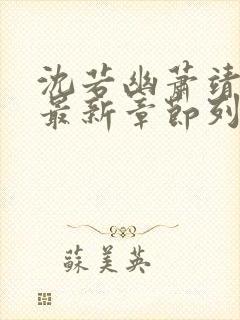 沈若幽蕭靖
最新章節列
蘇美英